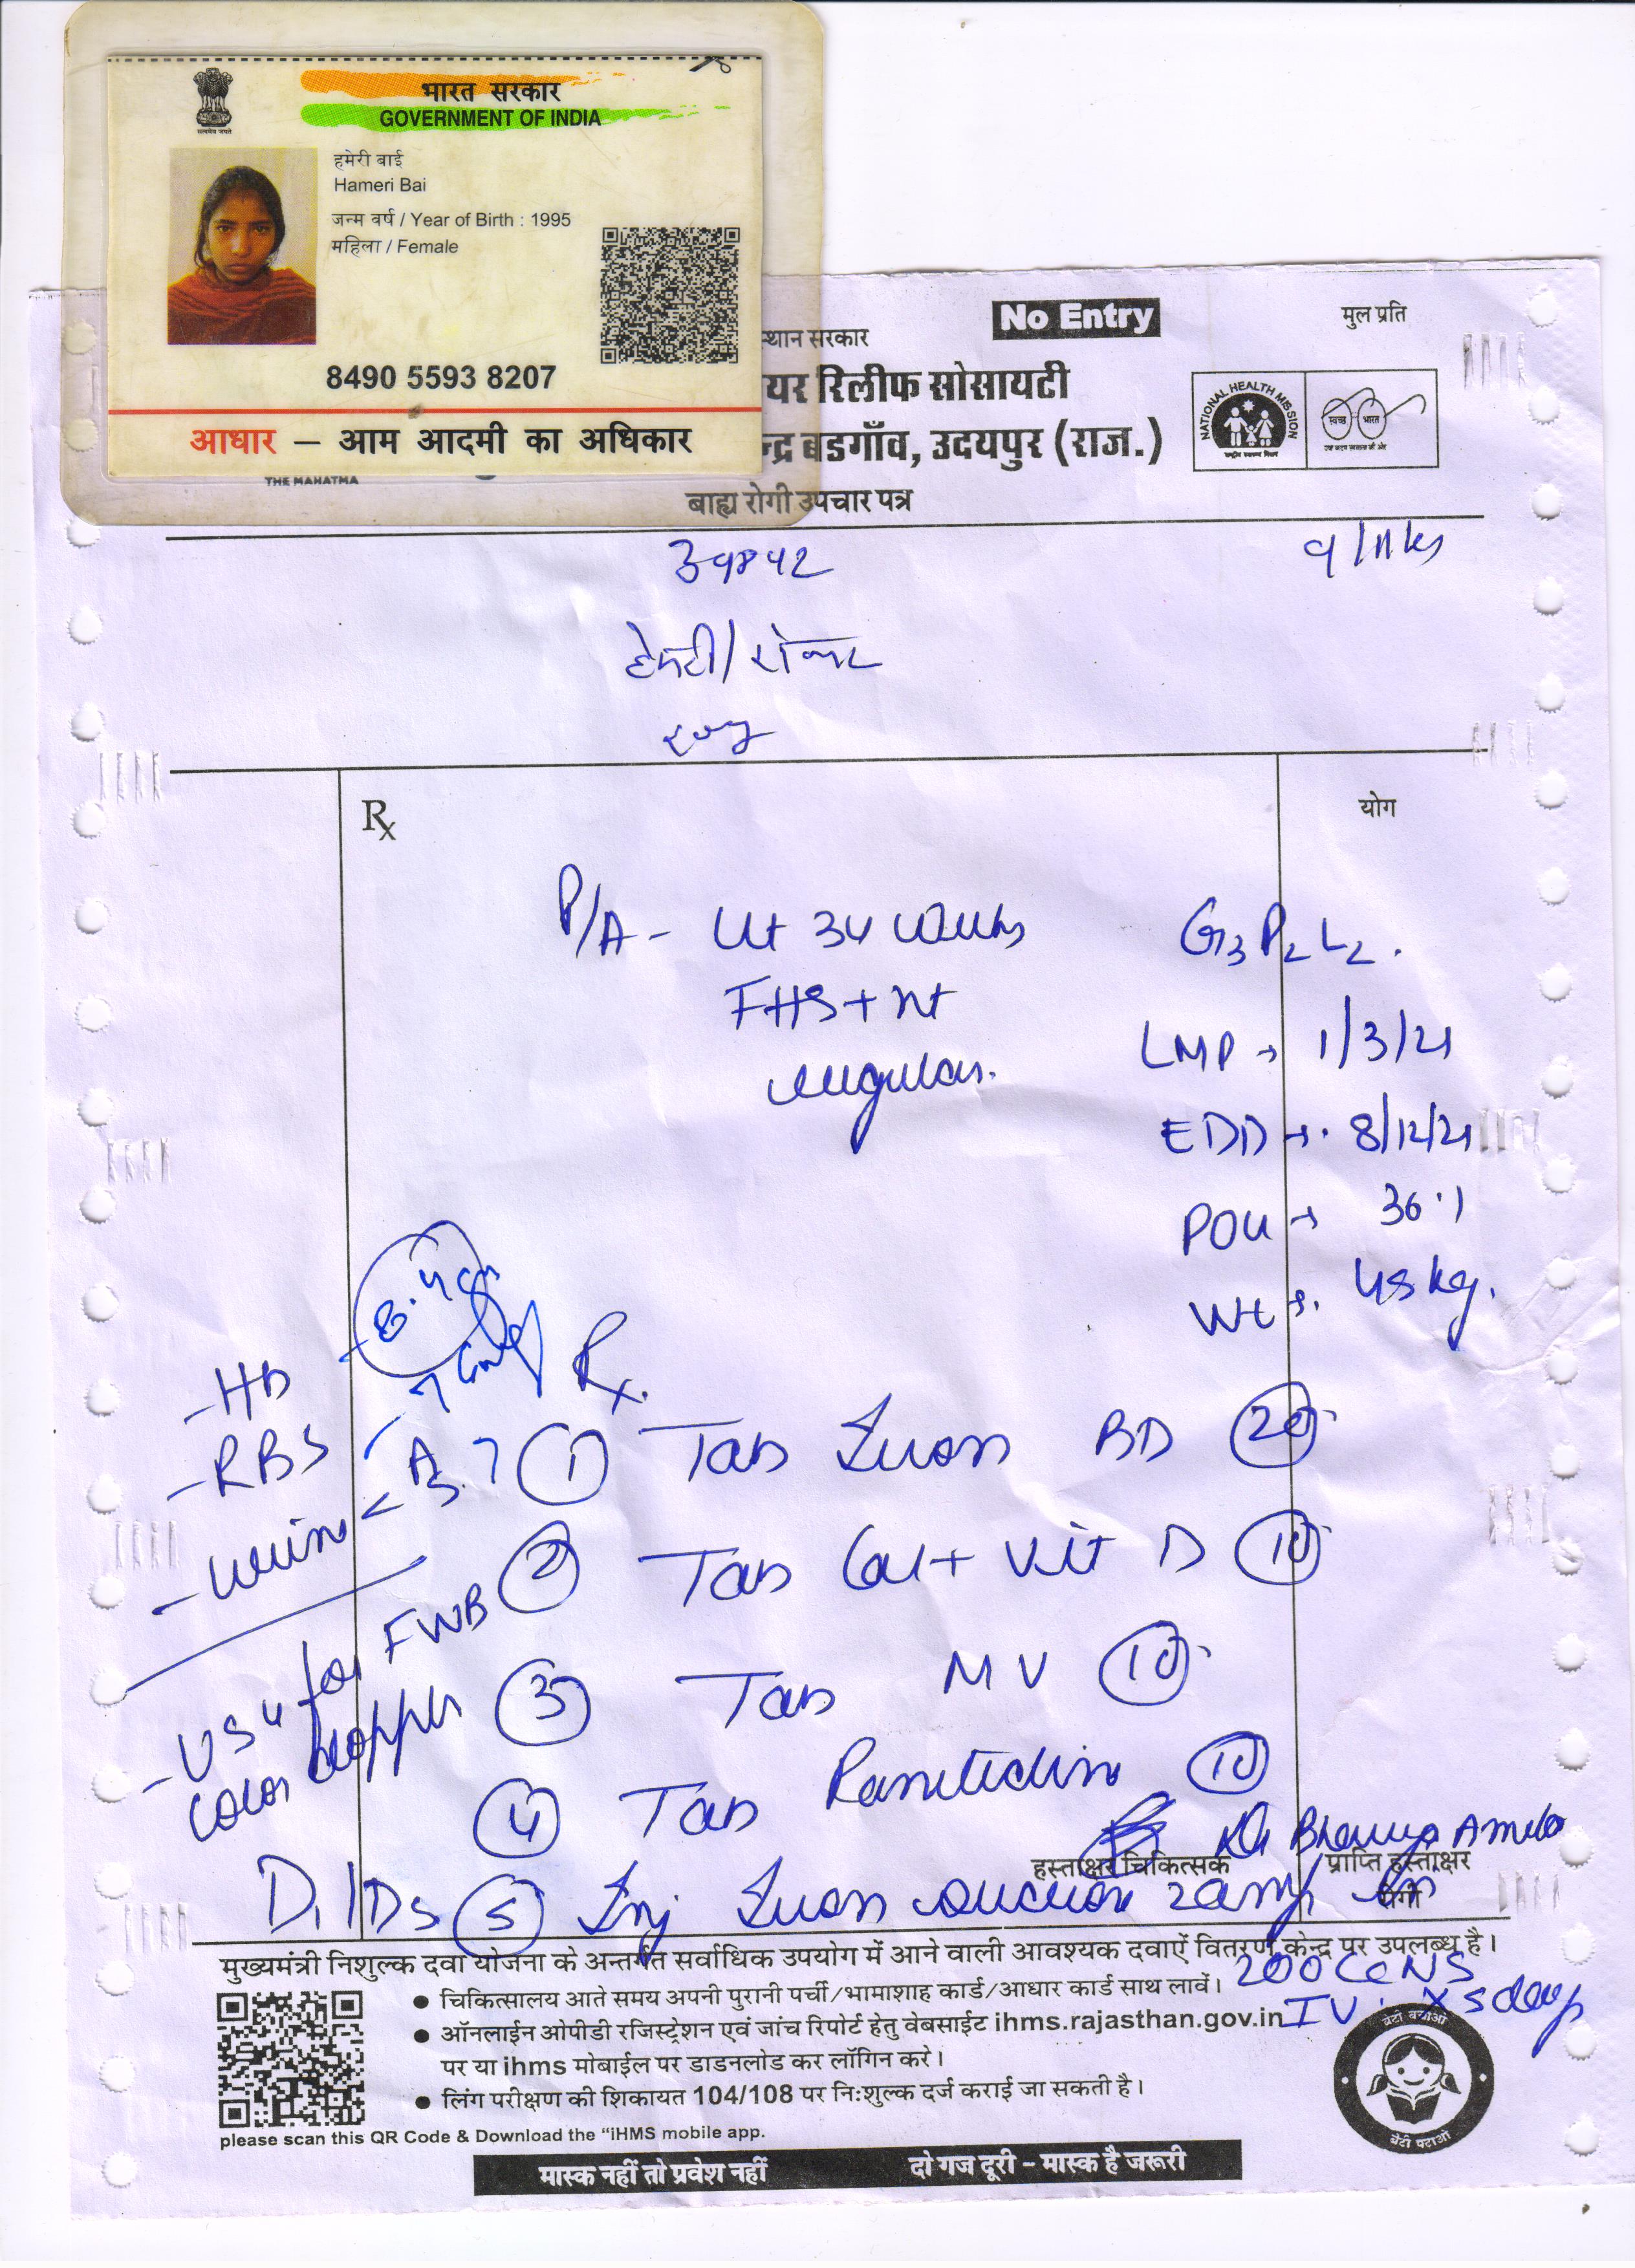 भारत सरकार
GOVERNMENT OF INDIA
हमेरी बाई
Hameri Bai
जन्म वर्ष / Year of Birth : 1995
महिला / Female
8490 5593 8207
आधार – आम आदमी का अधिकार
THE MAHATMA
No Entry
मुल प्रति
स्थान सरकार
यर रिलीफ सोसायटी
न्द्र बडगाँव, उदयपुर (राज.)
NATIONAL HEALTH MISSION
स्वच्छ भारत
बाह्य रोगी उपचार पत्र
Rx
योग
P/A - Ut 34 weeks
FHS + nt
regular.
G3P2L2.
LMP → 1/3/21
EDD → 8/12/21
POG → 36.1
Wt → 48 kg.
- HB 8.4
- RBS
- urine < A
Rx.
① Tab Iron BD 20
② Tab Cal + Vit D 10
③ Tab MV 10
④ Tab Ranitidine 10
- USG for FWB
color doppler
Dr
हस्ताक्षर चिकित्सक
प्राप्ति हस्ताक्षर
रोगी
⑤ Inj Iron sucrose 2 amp in
200 CC NS
IV x 5 days
मुख्यमंत्री निशुल्क दवा योजना के अन्तर्गत सर्वाधिक उपयोग में आने वाली आवश्यक दवाऐं वितरण केन्द्र पर उपलब्ध है।
● चिकित्सालय आते समय अपनी पुरानी पर्ची/भामाशाह कार्ड/आधार कार्ड साथ लावें।
● ऑनलाईन ओपीडी रजिस्ट्रेशन एवं जांच रिपोर्ट हेतु वेबसाईट ihms.rajasthan.gov.in
पर या ihms मोबाईल पर डाडनलोड कर लॉगिन करे।
● लिंग परीक्षण की शिकायत 104/108 पर निःशुल्क दर्ज कराई जा सकती है।
please scan this QR Code & Download the "iHMS mobile app.
बेटी बचाओ
बेटी पढाओ
मास्क नहीं तो प्रवेश नहीं
दो गज दूरी - मास्क है जरूरी